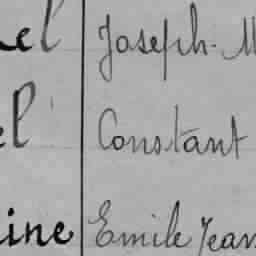 el Joseph-M
el Constant
ine Emile Jean